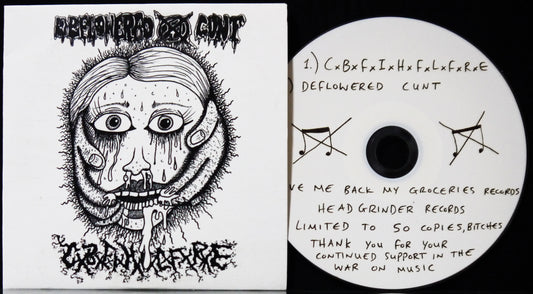 DEFLOWERED CUNT
1.) CxBxFxIxHxFxLxFxRxE
) DEFLOWERED CUNT
VE ME BACK MY GROCERIES RECORDS
HEAD GRINDER RECORDS
LIMITED TO 50 COPIES, BITCHES
THANK YOU FOR YOUR
CONTINUED SUPPORT IN THE
WAR ON MUSIC